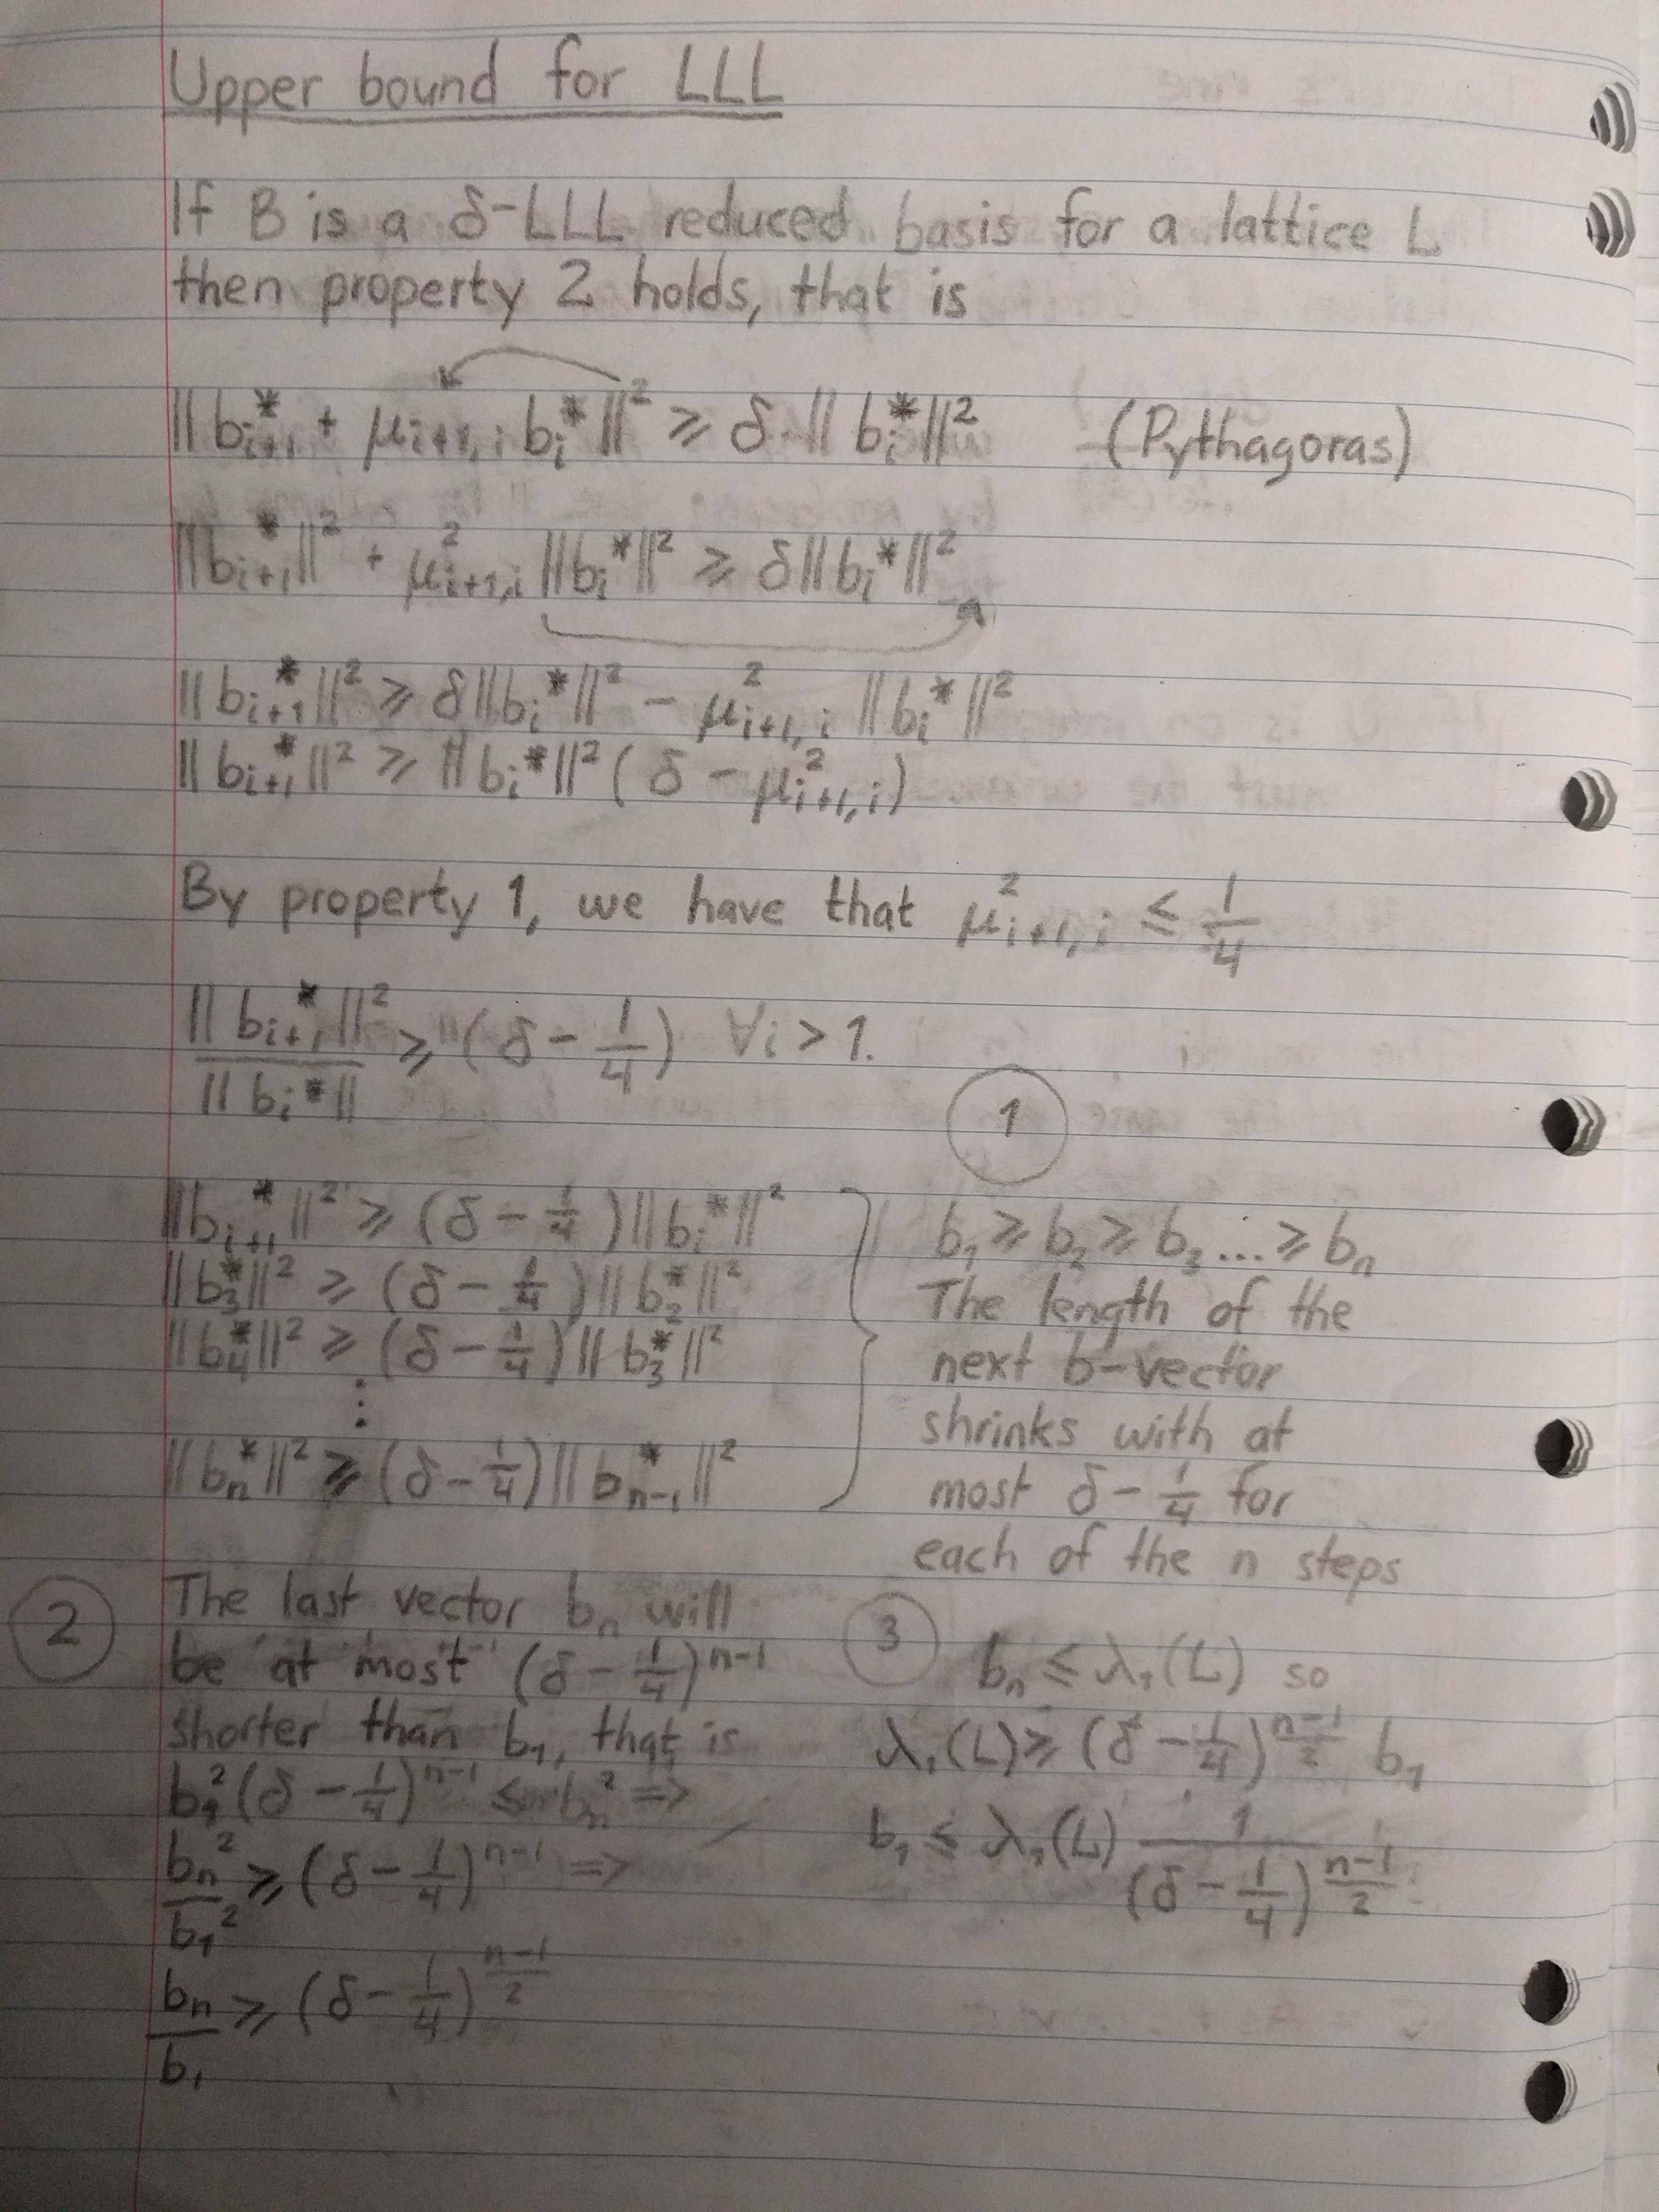 Upper bound for LLL
If B is a δ-LLL reduced basis for a lattice L
then property 2 holds, that is
||b*_{i+1} + μ_{i+1,i} b_i*||² ≥ δ·||b_i*||² (Pythagoras)
||b*_{i+1}||² + μ²_{i+1,i} ||b_i*||² ≥ δ||b_i*||²
||b*_{i+1}||² ≥ δ||b_i*||² - μ²_{i+1,i} ||b_i*||²
||b*_{i+1}||² ≥ ||b_i*||² (δ - μ²_{i+1,i})
By property 1, we have that μ²_{i+1,i} ≤ 1/4
||b*_{i+1}||² / ||b_i*|| ≥ (δ - 1/4) ∀i > 1.
||b*_{i+1}||² ≥ (δ - 1/4)||b_i*||²
||b_3*||² ≥ (δ - 1/4)||b_2*||²
||b_4*||² ≥ (δ - 1/4)||b_3*||²
⋮
||b_n*||² ≥ (δ - 1/4)||b*_{n-1}||²
1
b_1 ≥ b_2 ≥ b_3 ... ≥ b_n
The length of the
next b-vector
shrinks with at
most δ - 1/4 for
each of the n steps
2
The last vector b_n will
be at most (δ - 1/4)^{n-1}
shorter than b_1, that is
b_1²(δ - 1/4)^{n-1} ≤ b_n² =>
b_n²/b_1² ≥ (δ - 1/4)^{n-1} =>
b_n/b_1 ≥ (δ - 1/4)^{(n-1)/2}
3
b_n ≤ λ_1(L) so
λ_1(L) ≥ (δ - 1/4)^{(n-1)/2} b_1
b_1 ≤ λ_1(L) 1/(δ - 1/4)^{(n-1)/2}